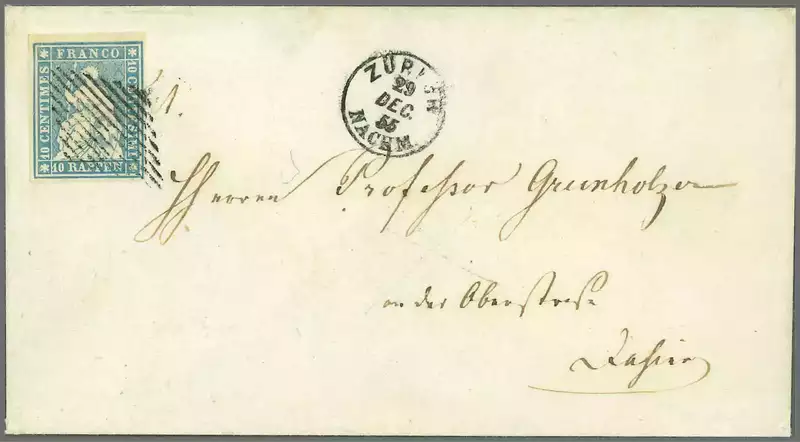 FRANCO
10 CENTIMES
10 CENTESIMI
10 RAPPEN
ZÜRICH
29
DEC.
55
NACHM.
Herren Professor Grunholzer
an der Oberstrass